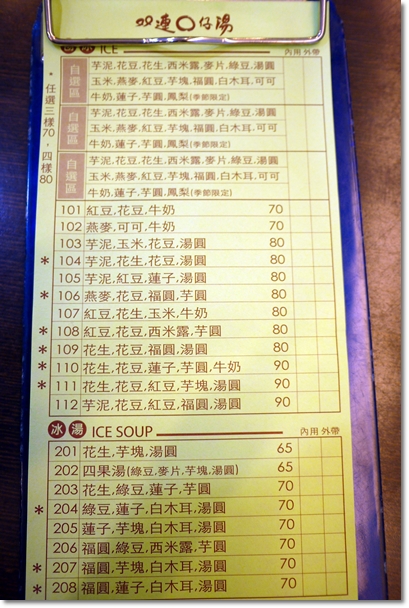 雙連○仔湯
冰 ICE 內用 外帶
*任選三樣70，四樣80
自選區
芋泥,花豆,花生,西米露,麥片,綠豆,湯圓
玉米,燕麥,紅豆,芋塊,福圓,白木耳,可可
牛奶,蓮子,芋圓,鳳梨(季節限定)
自選區
芋泥,花豆,花生,西米露,麥片,綠豆,湯圓
玉米,燕麥,紅豆,芋塊,福圓,白木耳,可可
牛奶,蓮子,芋圓,鳳梨(季節限定)
自選區
芋泥,花豆,花生,西米露,麥片,綠豆,湯圓
玉米,燕麥,紅豆,芋塊,福圓,白木耳,可可
牛奶,蓮子,芋圓,鳳梨(季節限定)
101 紅豆,花豆,牛奶 70
102 燕麥,可可,牛奶 70
103 芋泥,玉米,花豆,湯圓 80
* 104 芋泥,花生,花豆,湯圓 80
105 芋泥,紅豆,蓮子,湯圓 80
* 106 燕麥,花豆,福圓,芋圓 80
107 紅豆,花生,玉米,牛奶 80
* 108 紅豆,花豆,西米露,芋圓 80
* 109 花生,花豆,福圓,湯圓 80
* 110 花生,花豆,蓮子,芋圓,牛奶 90
* 111 花生,花豆,紅豆,芋塊,湯圓 90
112 芋泥,花豆,紅豆,福圓,湯圓 90
冰湯 ICE SOUP 內用 外帶
201 花生,芋塊,湯圓 65
202 四果湯(綠豆,麥片,芋塊,湯圓) 65
203 花生,綠豆,蓮子,芋圓 70
* 204 綠豆,蓮子,白木耳,湯圓 70
205 蓮子,芋塊,白木耳,湯圓 70
206 福圓,綠豆,西米露,芋圓 70
* 207 福圓,芋塊,白木耳,湯圓 70
* 208 福圓,蓮子,白木耳,湯圓 70